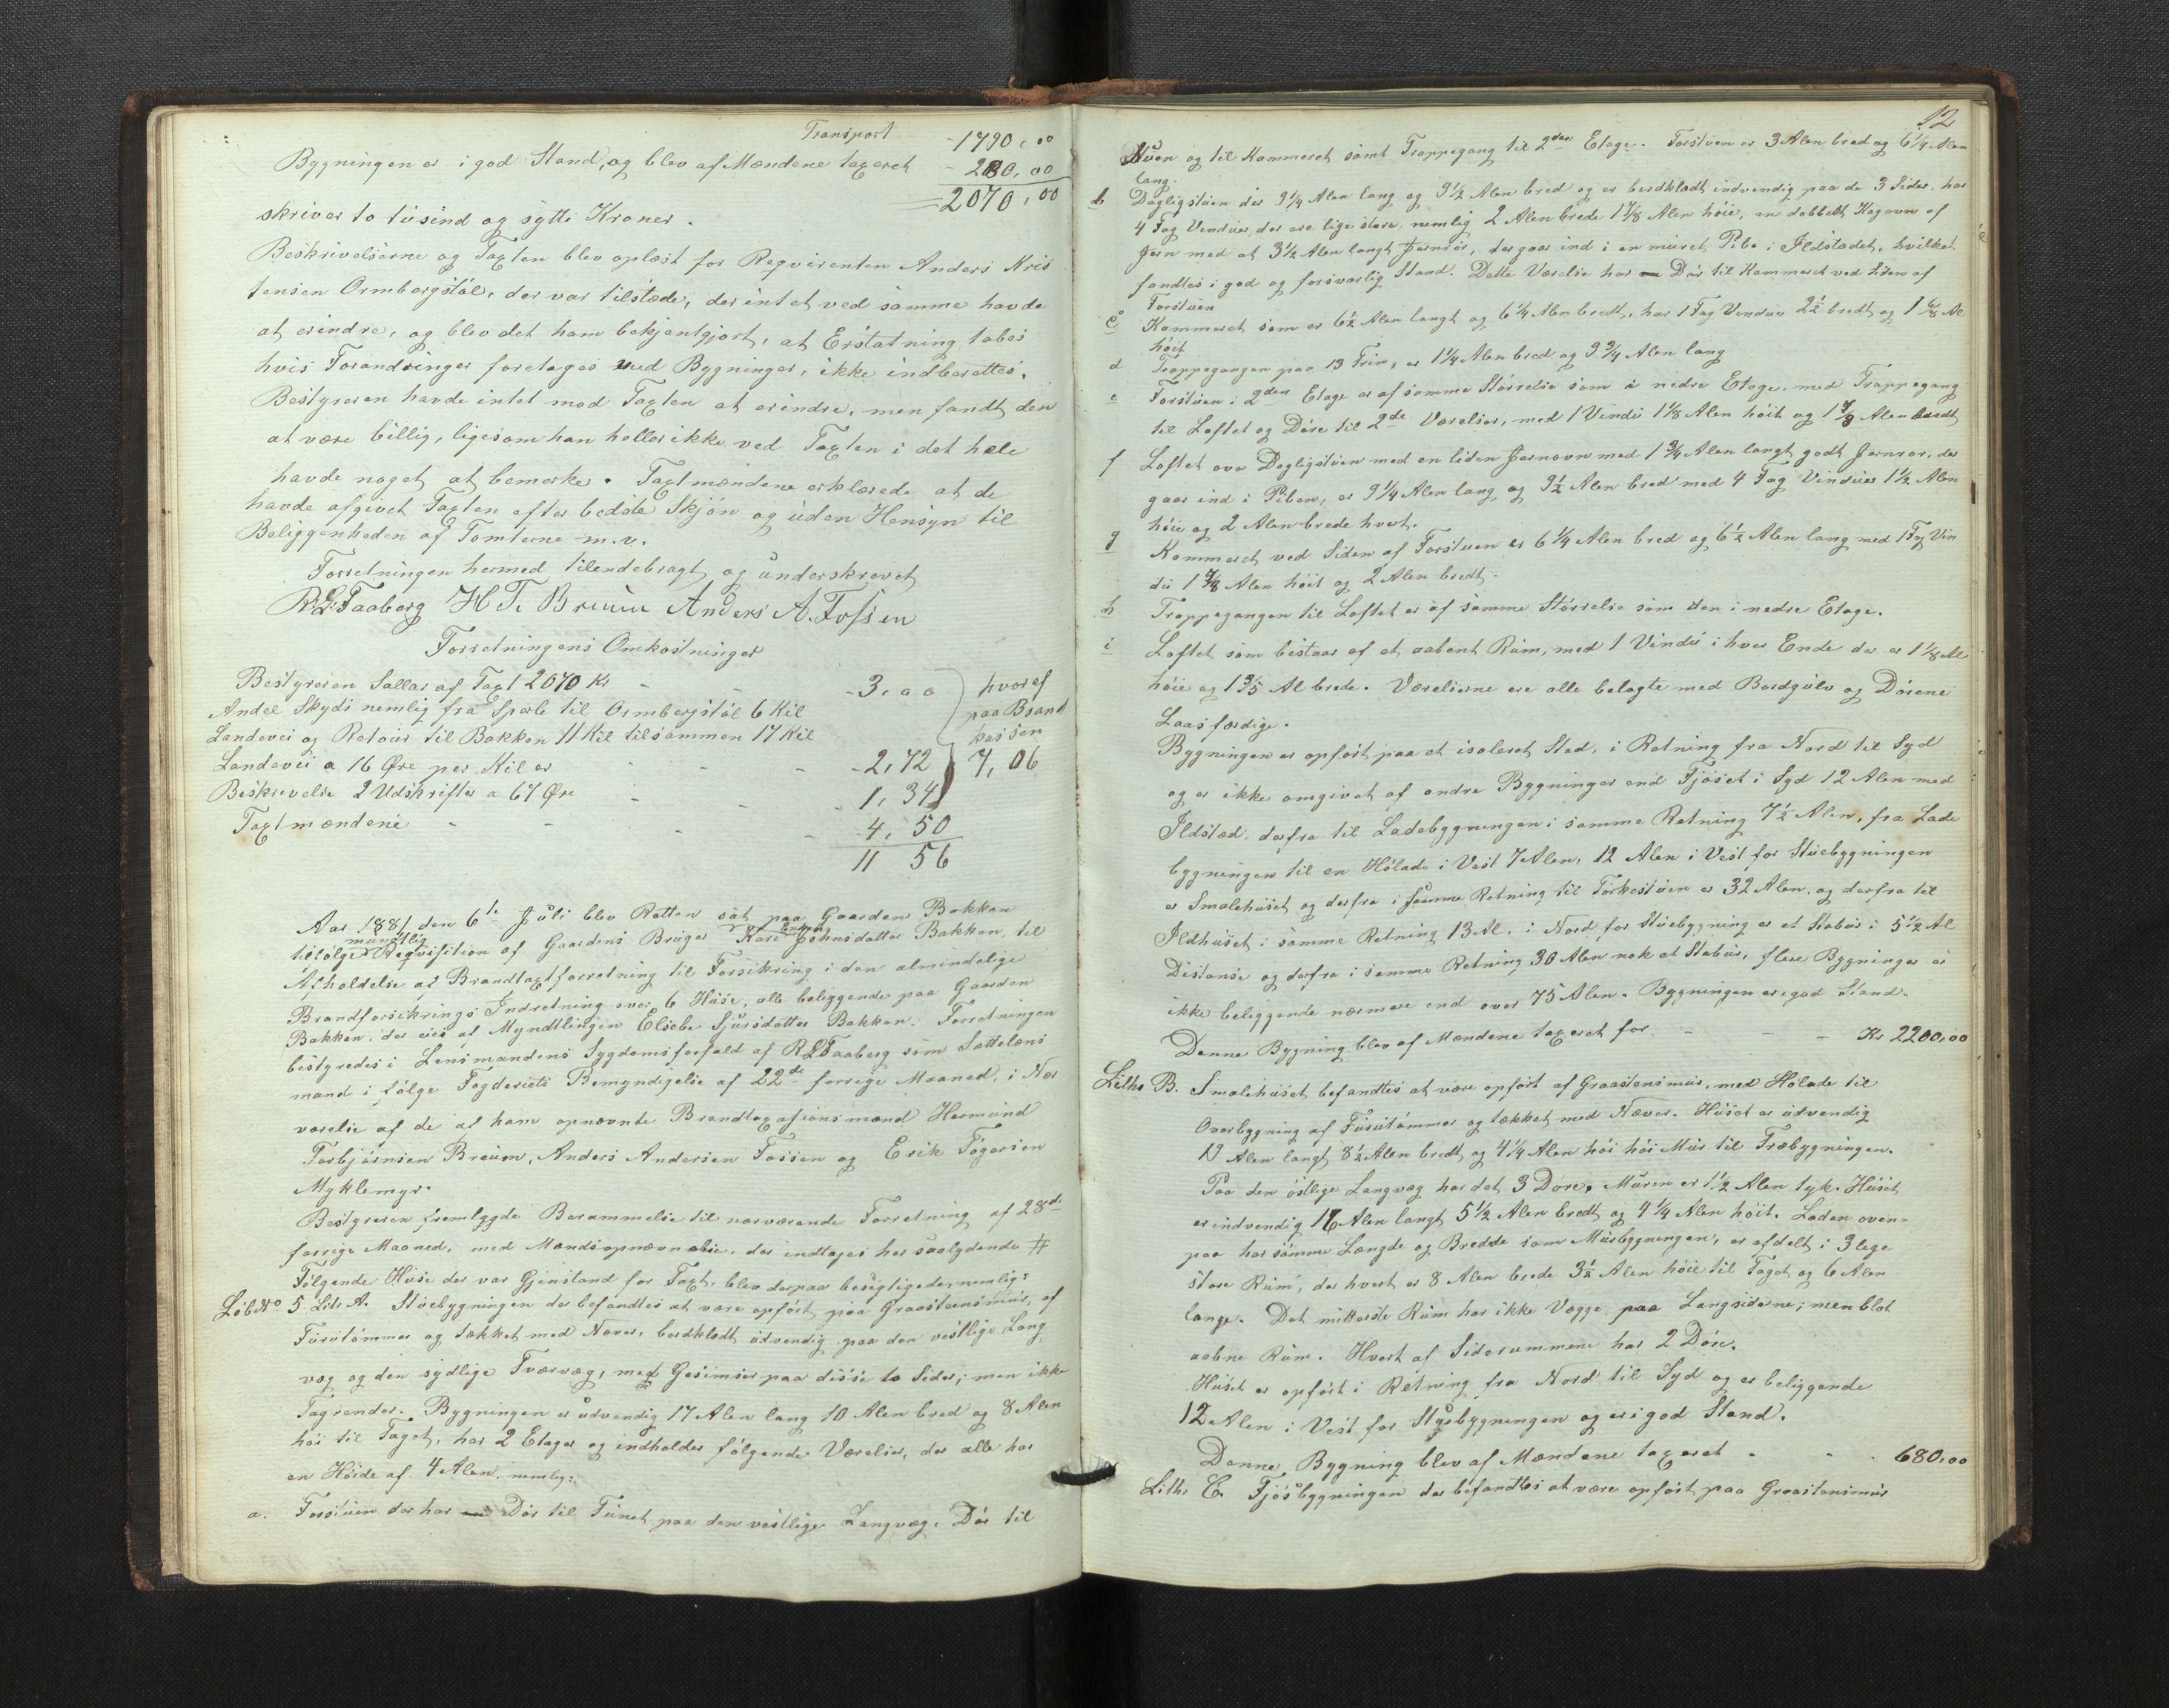 Transport - 1790,00
Bygningen er i god Stand, og blev af Mændene taxeret - 280,00
= 2070,00
skriver to tusind og sytti Kroner.
Beskrivelserne og Taxten blev oplæst for Reqvirenten Anders Kris
tensen Ormbergstøl, der var tilstede, der intet ved samme havde
at erindre, og blev det ham bekjentgjort, at Erstatning tabes
hvis Forandringer foretages ved Bygninger, ikke indberettes.
Bestyreren havde intet mod Taxten at erindre, men fandt den
at være billig, ligesom han heller ikke ved Taxten i det hele
havde noget at bemerke. Taxtmændene erklærede at de
havde afgivet Taxten efter bedste Skjøn og uden Hensyn til
Beliggenheden af Tomterne m.v.
Forretningen hermed tilendebragt og underskrevet
R. L. Faaberg H T. Breum Anders A. Fossen
Forretningens Omkostninger
Bestyreren Sallar af Taxt 2070 Kr - - 3,00 hvoraf
Andel Skyds nemlig fra Sperle til Ormbergstøl 6 Kil paa Brand
Landevei og Retour til Bakken 11 Kil tilsammen 17 Kil kassen
Landevei a 16 Øre per Kil er - - - 2,72 7,06
Beskrivelse 2 Udskrifter a 67 Øre - - - 1,34
Taxtmændene - - - - 4,50
11 56
Aar 1881 den 6te Juli blev Retten sat paa Gaarden Bakken
tilfølge mundtlig Reqvisition af Gaardens Bruger Enken Kari Johnsdatter Bakken, til
Afholdelse af Brandtaxtforretning til Forsikring i den almindelige
Brandforsikrings Indretning over 6 Huse, alle beliggende paa Gaarden
Bakken, der eies af Myndtlingen Elsebe Sjursdatter Bakken. Forretningen
bestyredes i Lensmandens Sygdomsforfald af R L Faaberg som Sættelens
mand i følge Fogderiets Bemyndigelse af 22de forrige Maaned, i Nær
værelse af de af ham opnævnte Brandtaxasionsmænd Hermund
Torbjørnsen Breum, Anders Andersen Fossen og Erik Tøgersen
Myklemyr.
Bestyreren fremlagde Berammelse til nærværende Forretning af 28de
forrige Maaned, med Mændsopnævnelse, der indtages her saalydende #
Følgende Huse der var Gjenstand for Taxt, blev derpaa besigtigede, nemlig:
Løb No 5. Litr A. Stuebygningen der befandtes at være opført paa Graasteensmuur, af
Furutømmer og tækket med Næver, bordklædt udvendig paa den vestlige Lang
væg og den sydlige Tværvæg, med Gesimser paa disse to Sider, men ikke
Tagrender. Bygningen er udvendig 17 Alen lang 10 Alen bred og 8 Alen
høi til Taget, har 2 Etager og indholder følgende Værelser, der alle har
en Høide af 4 Alen, nemlig:
a. Forstuen der har Dør til Tunet paa den vestlige Langvæg, Dør til
12
Stuen og til Kammeret samt Trappegang til 2den Etage. Forstuen er 3 Alen bred og 6¼ Alen
lang.
b Dagligstuen der 9¼ Alen lang og 9½ Alen bred og er bordklædt indvendig paa de 3 Sider, har
4 Fag Vinduer, der ere lige store, nemlig 2 Alen brede 1⅞ Alen høie, en dobbelt Kogovn af
Jern med et 3½ Alen langt Jernrør, der gaar ind i en muret Pibe i Ildstedet, hvilket
fandtes i god og forsvarlig Stand. Dette Værelse har Dør til Kammeret ved Siden af
Forstuen
c Kammeret som er 6½ Alen langt og 6¼ Alen bredt, har 1 Fag Vinduer 2½ bredt og 1 6/8 Al
høit
d Trappegangen paa 13 Trin, er 1¼ Alen bred og 3¾ Alen lang
e Forstuen i 2den Etage er af samme Størrelse som i nedre Etage, med Trappegang
til Loftet og Døre til 2de Værelser, med 1 Vindu 1⅛ Alen høit og 1⅞ Alen bredt
f Loftet over Dagligstuen med en liden Jernovn med 1¾ Alen langt godt Jernrør, der
gaar ind i Piben, er 9¼ Alen lang og 9½ Alen bred med 4 Fag Vinduer 1½ Alen
høie og 2 Alen brede hvert.
g Kammeret ved Siden af Forstuen er 6¼ Alen bred og 6½ Alen lang med 1 Fag Vin
du 1⅞ Alen høit og 2 Alen bredt.
h Trappegangen til Loftet er af samme Størrelse som den i nedre Etage.
i Loftet som bestaar af et aabent Rum, med 1 Vindu i hver Ende der er 1⅛ Al
høie og 1 3/5 Al brede. Værelserne ere alle belagte med Bordgulv og Dørene
Laasfærdige.
Bygningen er opført paa et isoleret Sted, i Retning fra Nord til Syd
og er ikke omgivet af andre Bygninger end Fjøset i Syd 12 Alen med
Ildsted, derfra til Ladebygningen i samme Retning 7½ Alen, fra Lade
bygningen til en Hølade i Vest 7 Alen, 12 Alen i Vest for Stuebygningen
er Smalehuset og derfra i samme Retning til Tørkestuen er 32 Alen, og derfra til
Ildhuset i samme Retning 13 Al, i Nord for Stuebygning er et Stabur i 5½ Al
Distanse og derfra i samme Retning 30 Alen nok et Stabur, flere Bygninger er
ikke beliggende nærmere end over 75 Alen. Bygningen er i god Stand.
Denne Bygning blev af Mændene taxeret for - - - Kr 2200,00
Lithr B. Smalehuset befandtes at være opført af Graastensmur, med Hølade til
Overbygning af Furutømmer og tækket med Næver. Huset er udvendig
19 Alen langt 8½ Alen bredt og 4¼ Alen høi høi Mur til Træbygningen.
Paa den østlige Langvæg har det 3 Døre. Muren er 1½ Alen tyk. Huset
er indvendig 16 Alen langt 5½ Alen bredt og 4¼ Alen høit. Laden oven-
paa har samme Længde og Bredde som Murbygningen, er afdelt i 3 lige
store Rum, der hvert er 8 Alen brede 3½ Alen høie til Taget og 6 Alen
lange. Det mitterste Rum har ikke Vægge paa Langsiderne; men blot
aabne Rum. Hvert af Siderummene har 2 Døre.
Huset er opført i Retning fra Nord til Syd og er beliggende
12 Alen i Vest for Stuebygningen og er i god Stand.
Denne Bygning blev af Mændene taxeret - - - 680,00
Lithr C. Fjøsbygningen der befandtes at være opført paa Graastensmur